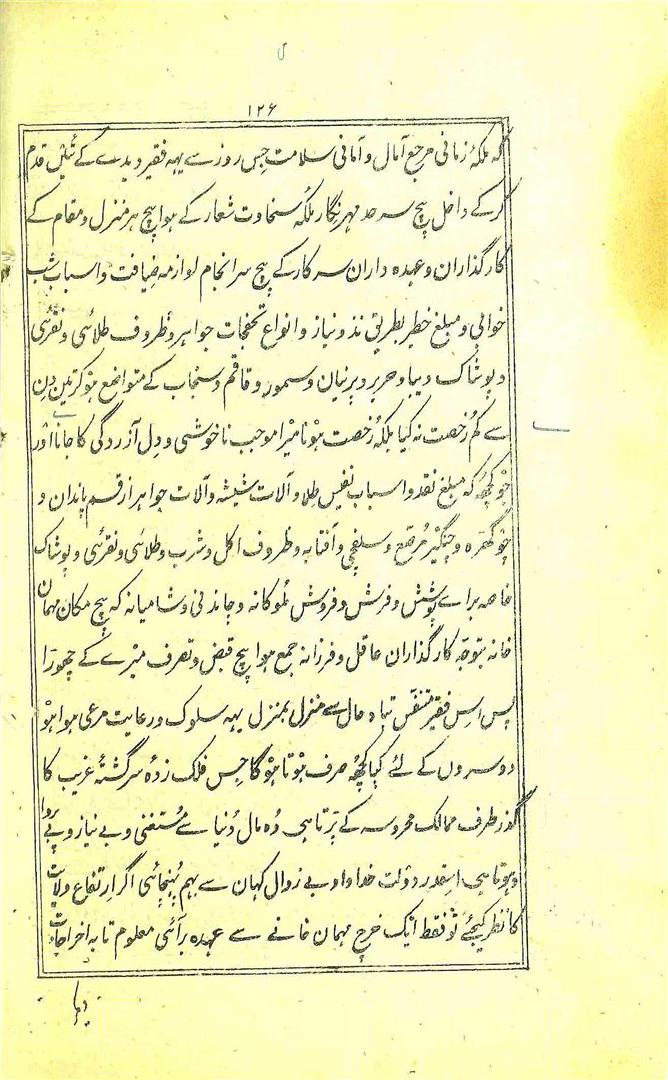 ۱۲۶
کہ ملکۂ زمانی مرجع آمال و آمانی سلامت جس روز سے یہہ فقیر دیدے کے تئیں قدم
کر کے داخل بیچ سرحد مہر نگار ملکہ سخاوت شعار کے ہوا بیچ ہر منزل و مقام کے
کارگذاران و عہدہ داران سرکار کے بیچ سرانجام لوازمہ ضیافت و اسباب شب
خوابی و مبلغ خطیر بطریق نذر و نیاز و انواع تحفجات جواہر و ظروف طلائی و نقرئی
و پوشاک دیبا و حریر و پرنیان و سمور و قاقم و سنجاب کے متواضع ہو کر تین دِن
سے کم رُخصت نہ کیا بلکہ رُخصت ہونا میرا موجب ناخوشی و دِل آزردگی کا جانا اور
جو کچھ کہ مبلغ نقد و اسباب نفیس طِلا و آلات شیشہ و آلات جواہر از قسم پاندان و
چوگھرہ و چنگیر مُرصّع و سلفچی و آفتابہ و ظروف اکل و شرب و طلائی و نقرئی و پوشاک
خاصہ براے پوشش و فرش و فروش ملوکانہ و چاندنی و شامیانہ کہ بیچ مکان مہمان
خانہ بتوجّہ کارگذاران عاقل و فرزانہ جمع ہوا بیچ قبض و تصرف میرے کے چھوڑا
پس اِس فقیر متنفّس تباہ حال سے منزل بمنزل یہہ سلوک و رعایت مرعی ہوا ہو
دوسروں کے لئے کیا کچھ صرف ہوتا ہوگا جس فلک زدہ سرگشتۂ غریب کا
گذر طرف ممالک محروسہ کے پڑتا ہی وُہ مال دُنیا سے مُستغنی و بے نیاز و بے پروا
ہوتا ہی اِسقدر دَولت خداداد بے زوال کہاں سے بہم پُہنچائی اگر اِرتفاع ولایت
کا نظر کیجئے تو فقط ایک خرچ مہمان خانے سے عہدہ برآئی معلوم تا بہ اخراجات